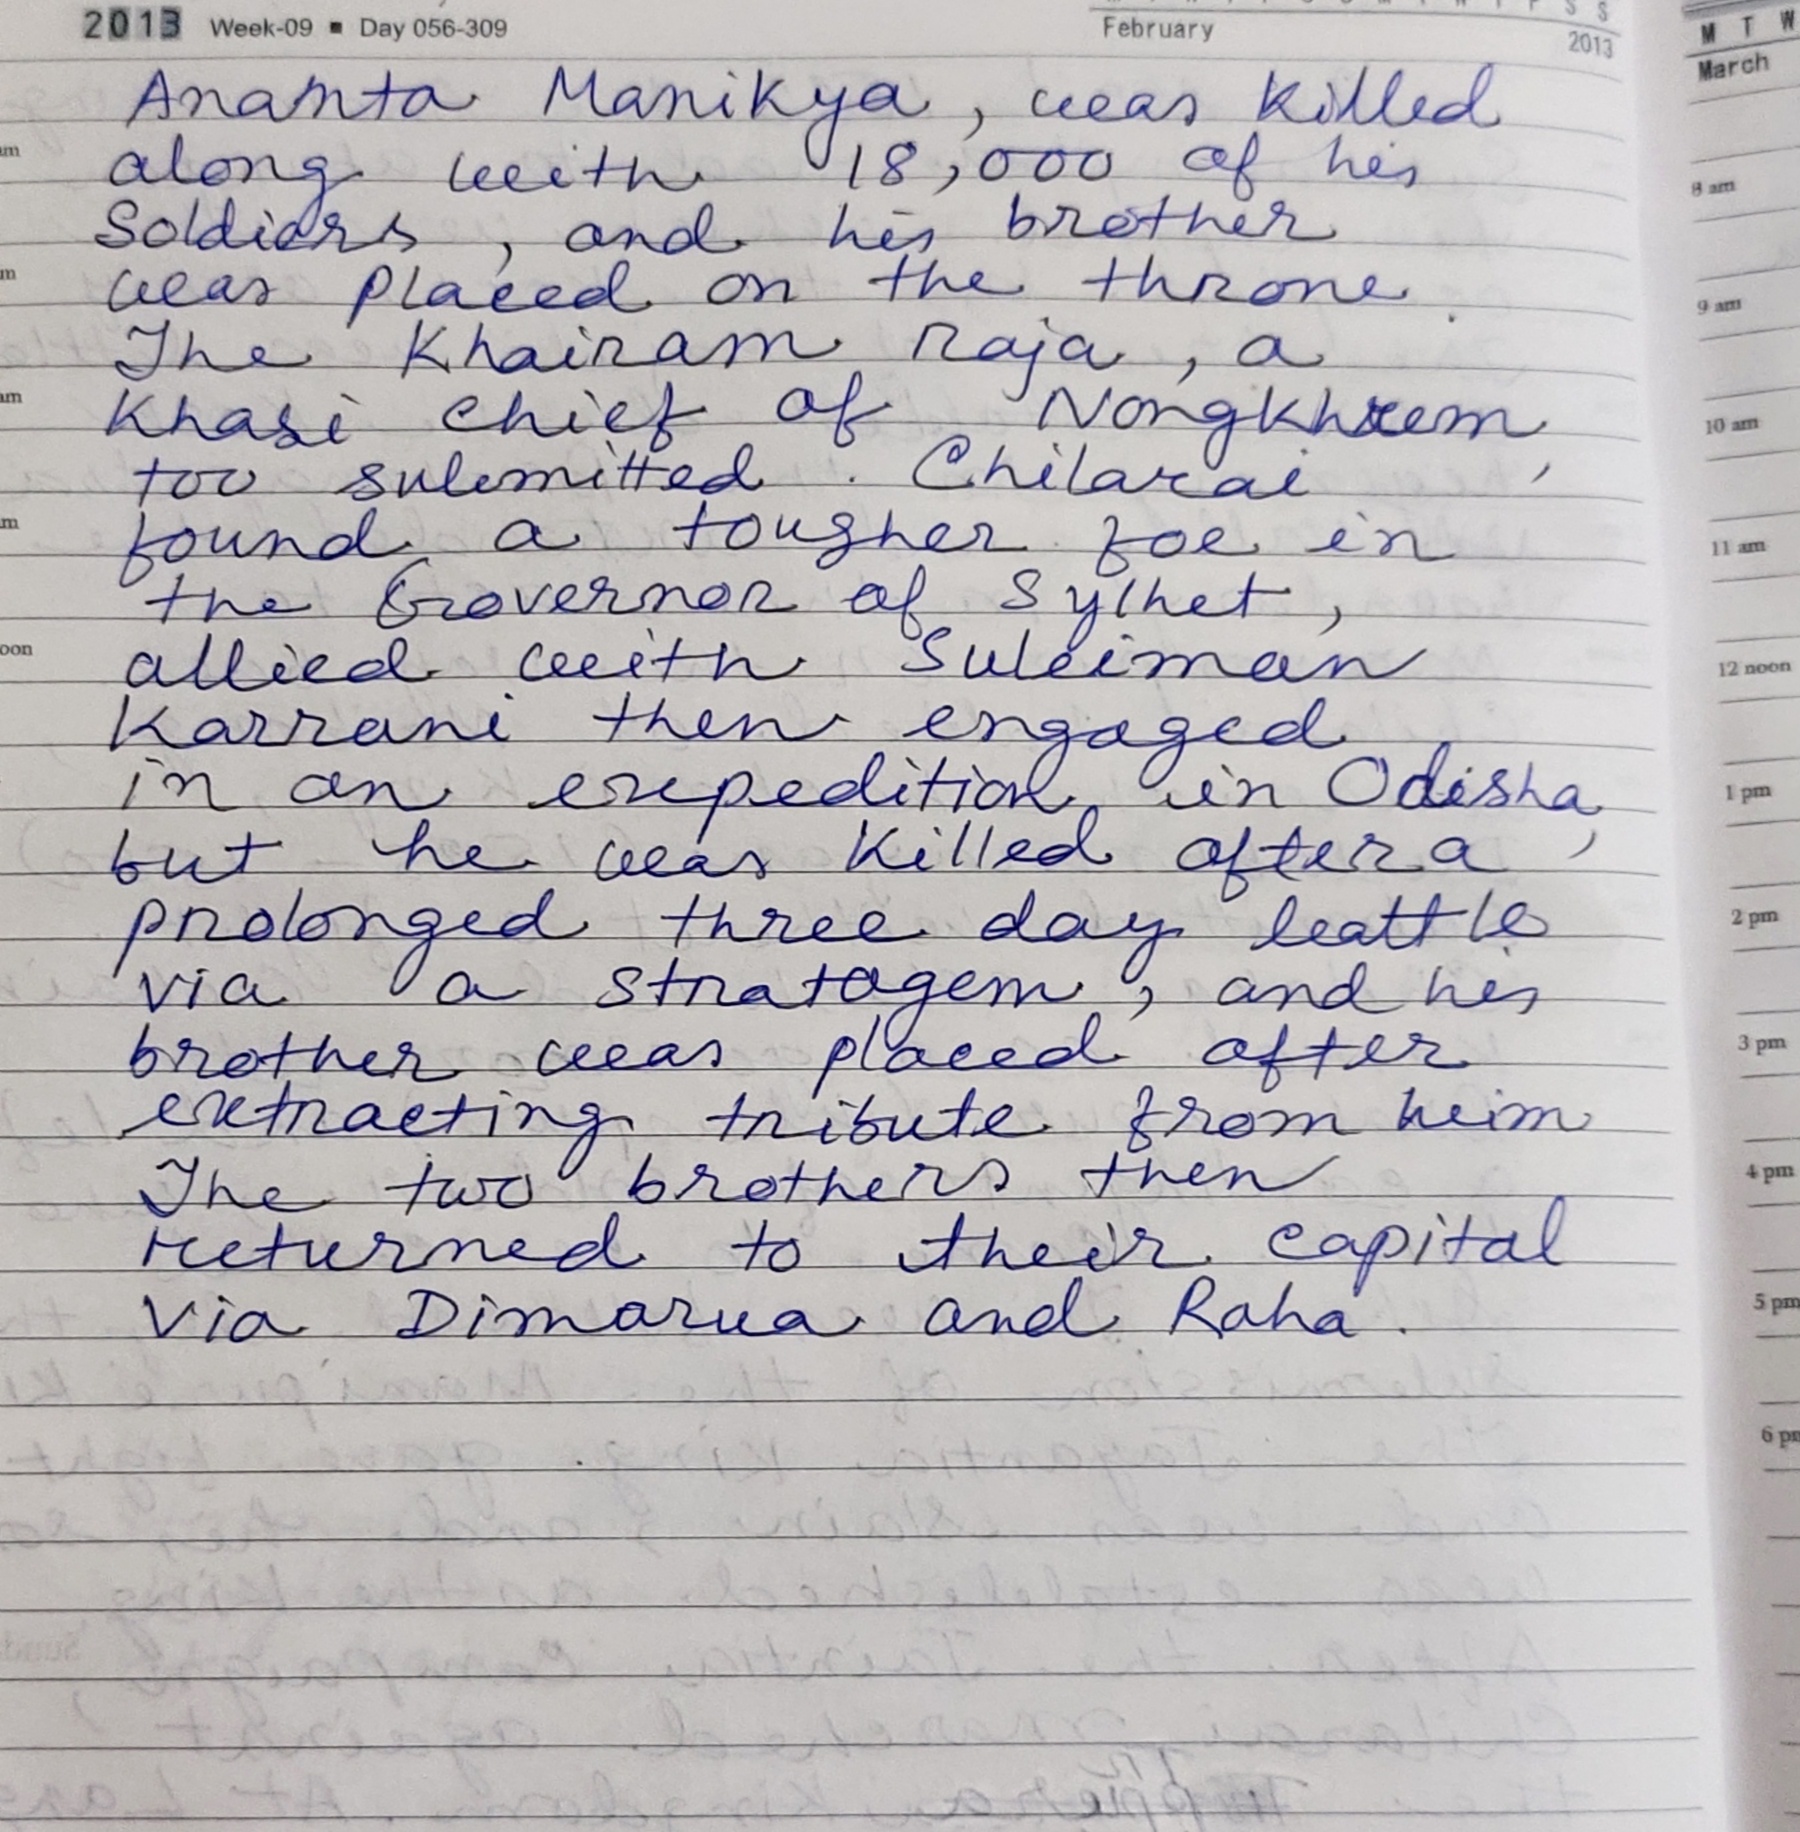 2013 Week-09 ▪ Day 056-309
February
2013
M T W
March
Ananta Manikya, was killed
along with 18,000 of his
Soldiers, and his brother
was placed on the throne.
The Khairam raja, a
Khasi chief of Nongkhrem,
too submitted. Chilarai
found a tougher foe in
the Governor of Sylhet,
allied with Suleiman
Karrani then engaged
in an expedition in Odisha,
but he was killed after a
prolonged three day battle
via a stratagem, and his
brother was placed after
extracting tribute from him
The two brothers then
returned to their capital
via Dimarua and Raha.
8 am
9 am
10 am
11 am
12 noon
1 pm
2 pm
3 pm
4 pm
5 pm
6 pm